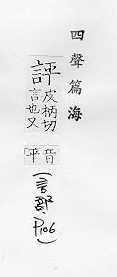 四聲篇海
評
皮柄切
言也又
音平
(言部.P106)